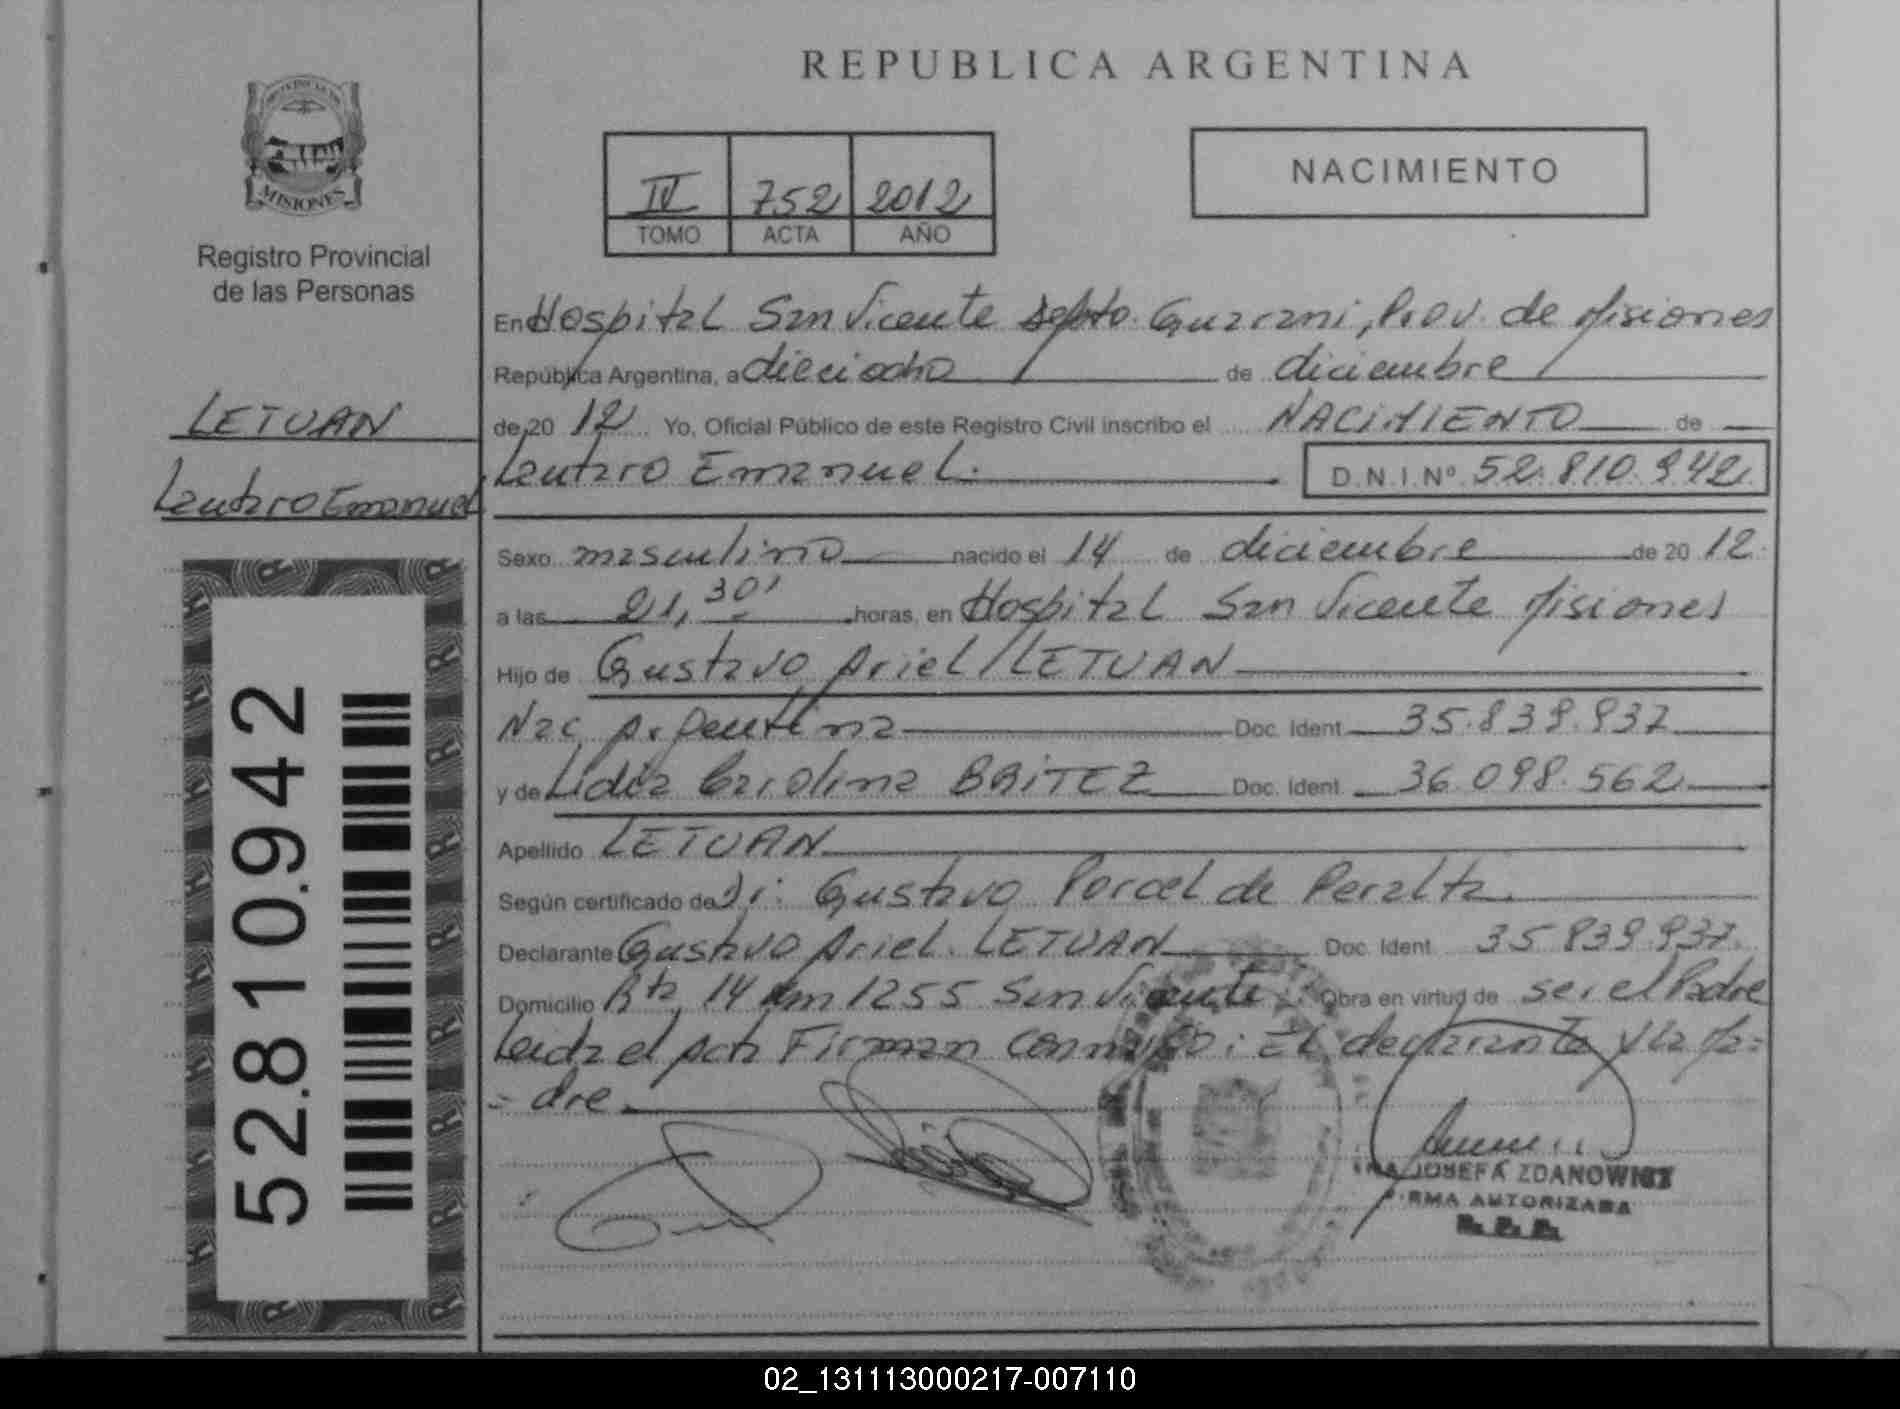 REPUBLICA ARGENTINA
MISIONES
Registro Provincial
de las Personas
LETUAN
Lautaro Emanuel
52.810.942
IV 752 2012
TOMO ACTA AÑO
NACIMIENTO
En Hospital San Vicente depto. Guarani, Prov. de Misiones
República Argentina, a dieciocho de diciembre
de 20 12 Yo, Oficial Público de este Registro Civil inscribo el NACIMIENTO de
Lautaro Emanuel. D.N.I.Nº 52.810.942
Sexo masculino nacido el 14 de diciembre de 20 12
a las 21,30' horas, en Hospital San Vicente Misiones
Hijo de Gustavo Ariel LETUAN
Nac. Argentina Doc. Ident 35.839.937
y de Lidia Carolina BRITEZ Doc. Ident 36.098.562
Apellido LETUAN
Según certificado de Gustavo Porcel de Peralta.
Declarante Gustavo Ariel. LETUAN Doc. Ident 35.839.937.
Domicilio Rta 14 km 1255 San Vicente Obra en virtud de ser el Padre
Leida el Acta Firman conmigo: El declarante y la Ma=
= dre
JOSEFA ZDANOWICZ
FIRMA AUTORIZADA
R. P. P.
02_131113000217-007110